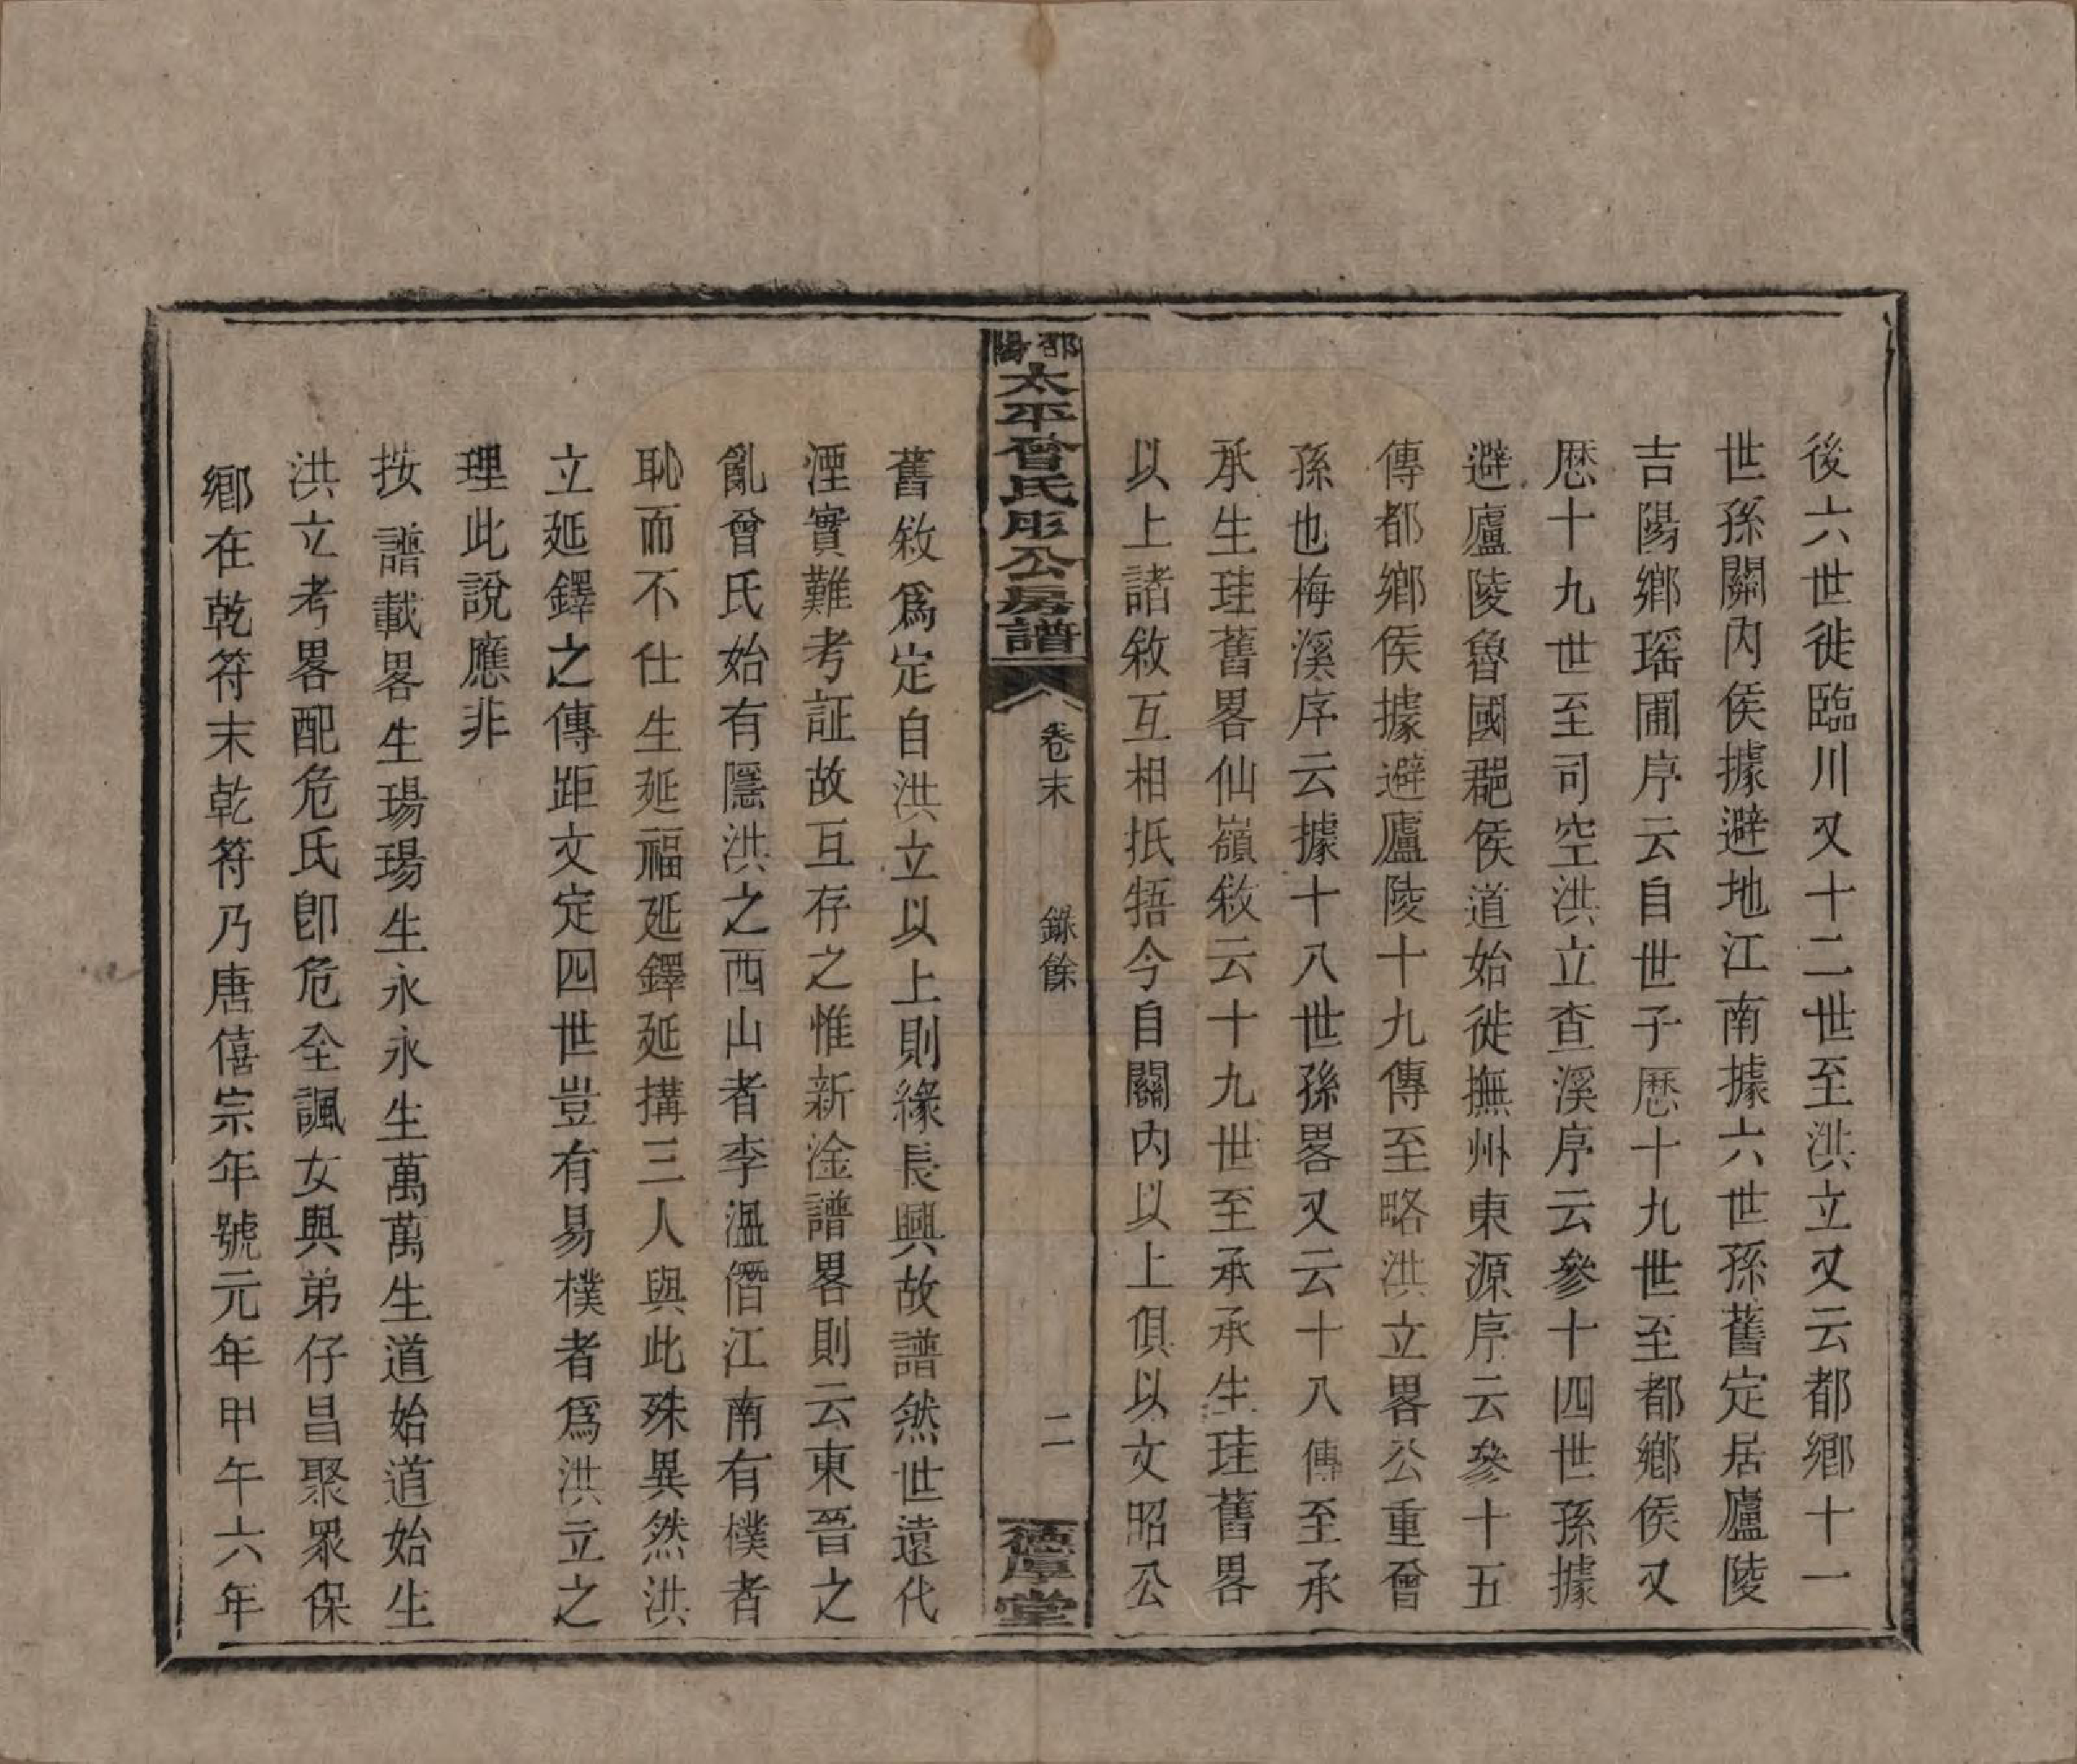 後六世徙臨川又十二世至洪立又云都鄉十一
世孫關內侯據避地江南據六世孫舊定居廬陵
吉陽鄉瑶圃序云自世子歷十九世至都鄉侯又
歷十九世至司空洪立查溪序云參十四世孫據
避廬陵魯國郡侯道始徙撫州東源序云參十五
傳都鄉侯據避廬陵十九傳至略洪立畧公重曾
孫也梅溪序云據十八世孫畧又云十八傳至承
承生珪舊畧仙嶺敘云十九世至承承生珪舊畧
以上諸敘互相抵牾今自關內以上俱以文昭公
邵陽太平曾氏彤公房譜
卷末
錄餘
二
德厚堂
舊敘爲定自洪立以上則緣長興故譜然世遠代
湮實難考証故互存之惟新淦譜畧則云東晉之
亂曾氏始有隱洪之西山者李溫僭江南有樸者
恥而不仕生延福延鐸延搆三人與此殊異然洪
立延鐸之傳距文定四世豈有易樸者爲洪立之
理此說應非
按譜載畧生瑒瑒生永永生萬萬生道始道始生
洪立考畧配危氏卽危全諷女與弟仔昌聚眾保
鄉在乾符末乾符乃唐僖宗年號元年甲午六年